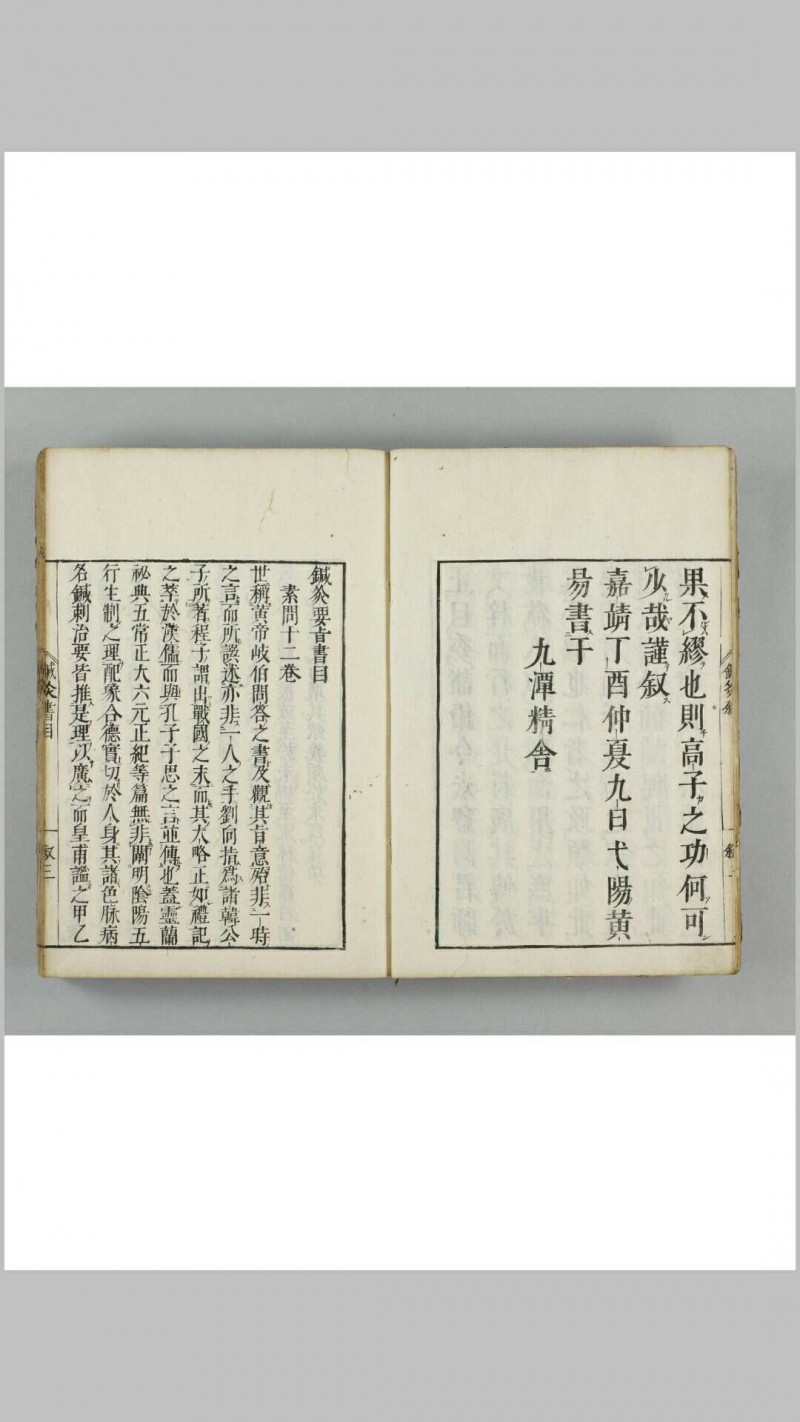 果不繆也則高子之功何可
少哉謹叙
嘉靖丁酉仲夏九日弋陽黃
易書于
九潭精舎
鍼灸要旨書目
素問十二卷
世稱黃帝岐伯問答之書及觀其旨意殆非一時
之言而所譔述亦非一人之手劉向指爲諸韓公
子所著程子謂出戰國之末而其大略正如禮記
之萃於漢儒而與孔子子思之言並傳也蓋靈蘭
祕典五常正大六元正紀等篇無非闡明陰陽五
行生制之理配象合德實切於人身其諸色脉病
名鍼刺治要皆推是理以廣之而皇甫謐之甲乙
鍼灸書目